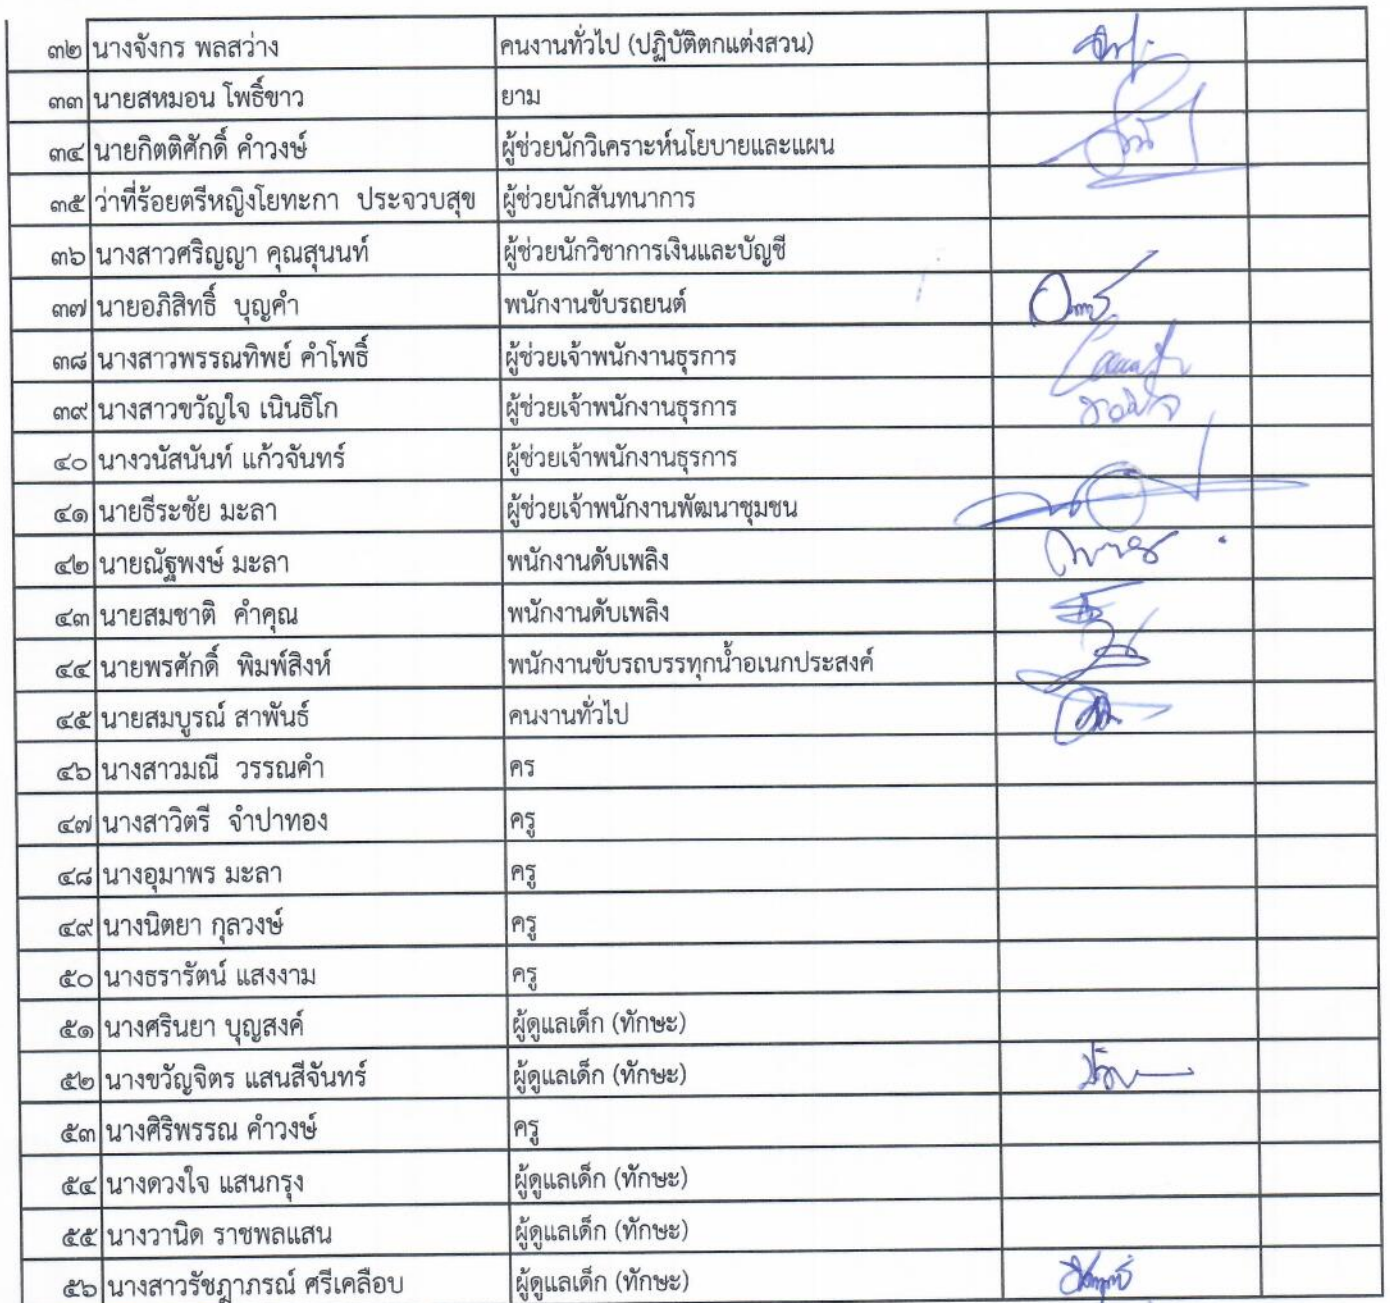 ๓๒ นางจังกร พลสว่าง คนงานทั่วไป (ปฏิบัติตกแต่งสวน)
๓๓ นายสหมอน โพธิ์ขาว ยาม
๓๔ นายกิตติศักดิ์ คำวงษ์ ผู้ช่วยนักวิเคราะห์นโยบายและแผน
๓๕ ว่าที่ร้อยตรีหญิงโยทะกา ประจวบสุข ผู้ช่วยนักสันทนาการ
๓๖ นางสาวศริญญา คุณสุนนท์ ผู้ช่วยนักวิชาการเงินและบัญชี
๓๗ นายอภิสิทธิ์ บุญคำ พนักงานขับรถยนต์
๓๘ นางสาวพรรณทิพย์ คำโพธิ์ ผู้ช่วยเจ้าพนักงานธุรการ
๓๙ นางสาวขวัญใจ เนินธิโก ผู้ช่วยเจ้าพนักงานธุรการ
๔๐ นางวนัสนันท์ แก้วจันทร์ ผู้ช่วยเจ้าพนักงานธุรการ
๔๑ นายธีระชัย มะลา ผู้ช่วยเจ้าพนักงานพัฒนาชุมชน
๔๒ นายณัฐพงษ์ มะลา พนักงานดับเพลิง
๔๓ นายสมชาติ คำคุณ พนักงานดับเพลิง
๔๔ นายพรศักดิ์ พิมพ์สิงห์ พนักงานขับรถบรรทุกน้ำอเนกประสงค์
๔๕ นายสมบูรณ์ สาพันธ์ คนงานทั่วไป
๔๖ นางสาวมณี วรรณคำ คร
๔๗ นางสาวิตรี จำปาทอง ครู
๔๘ นางอุมาพร มะลา ครู
๔๙ นางนิตยา กุลวงษ์ ครู
๕๐ นางธรารัตน์ แสงงาม ครู
๕๑ นางศรินยา บุญสงค์ ผู้ดูแลเด็ก (ทักษะ)
๕๒ นางขวัญจิตร แสนสีจันทร์ ผู้ดูแลเด็ก (ทักษะ)
๕๓ นางศิริพรรณ คำวงษ์ ครู
๕๔ นางดวงใจ แสนกรุง ผู้ดูแลเด็ก (ทักษะ)
๕๕ นางวานิด ราชพลแสน ผู้ดูแลเด็ก (ทักษะ)
๕๖ นางสาวรัชฎาภรณ์ ศรีเคลือบ ผู้ดูแลเด็ก (ทักษะ)